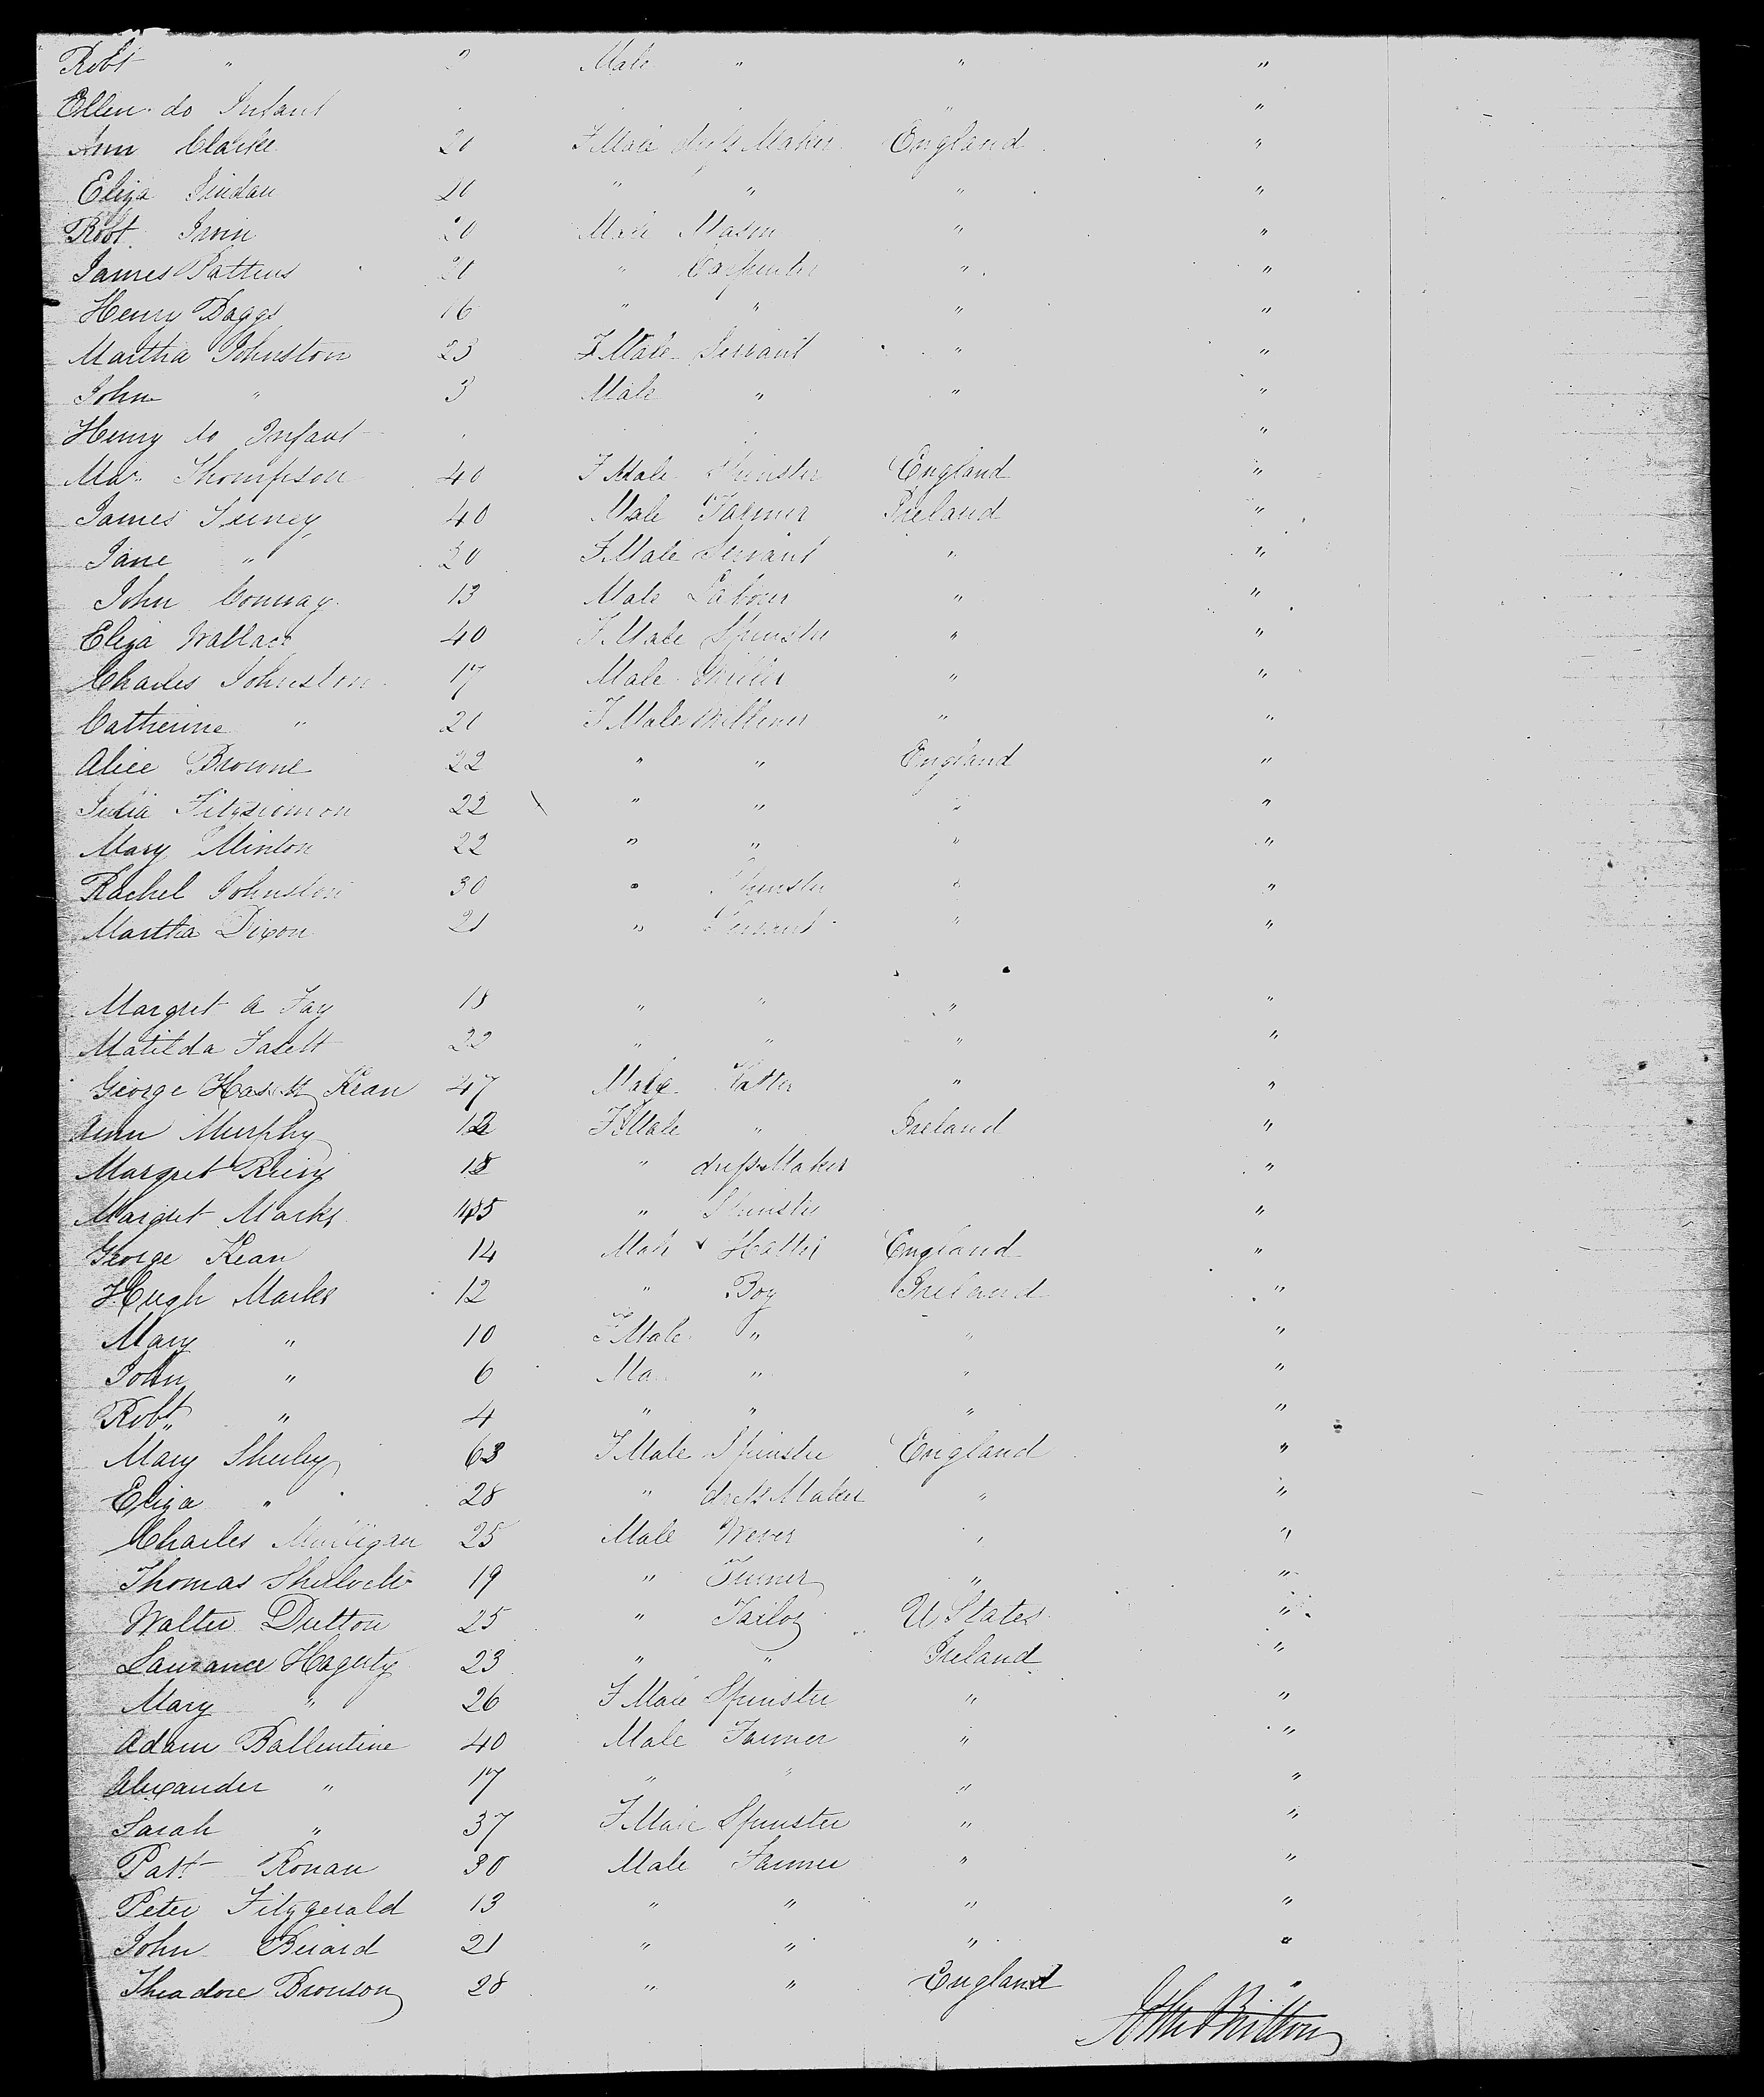 Robt " Male " " "
Ellen do Infant " "
Ann Clarke 20 F Male dress Maker England "
Eliza 20 " " " "
Robt Irvin 20 Male Mason " "
James Pattens 20 " Carpenter " "
Henry Baggs 16 " " " "
Martha Johnston 23 F Male Servant " "
John " 3 Male " " "
Henry do Infant "
Thompson 40 F Male Spinster England "
James 40 Male Farmer Ireland "
Jane " 30 F Male Servant " "
John Conway 13 Male Labour " "
Eliza Wallace 40 F Male Spinster " "
Charles Johnston 17 Male " "
Catherine " 20 F Male Milliner " "
Alice Browne 22 " " England "
Fitzsiomon 22 " " " "
Mary Minton 22 " " " "
Rachel Johnston 30 " Spinster " "
Martha Dixon 21 " Servant " "
Margret A Fay 18 " " " "
Matilda Fasett 22 " " " "
George Kean 47 Male Hatter " "
Ann Murphy 12 F Male " Ireland "
Margret 18 " dress Maker "
Margret Marks 45 " Spinster "
George Kean 14 Male Hatter England "
Hugh Marks 12 " Boy Ireland "
Mary " 10 F Male " " "
John " 6 Ma " " "
Robt " 4 " " " "
Mary Shurley 63 F Male Spinster England "
Eliza " 28 " dress Maker " "
Charles Mulligan 25 Male Wever " "
Thomas 19 " Turner " "
Walter Dutton 25 " Tailor U States "
Laurance Hagerty 23 " " Ireland "
Mary " 26 F Male Spinster " "
Adam Ballentine 40 Male Farmer " "
Alexander " 17 " " " "
Sarah " 37 F Male Spinster " "
Patt Ronan 30 Male Farmer " "
Peter Fitzgerald 13 " " " "
John Berard 21 " " " "
Theadore Bronson 28 " " England "